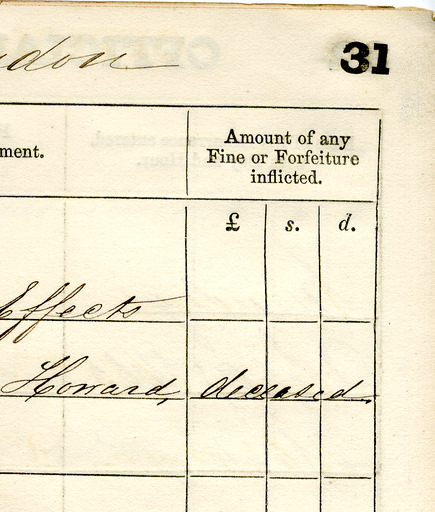 don 31
Amount of any
Fine or Forfeiture
inflicted.
ment.
£ s. d.
Effects
Howard, deceased.